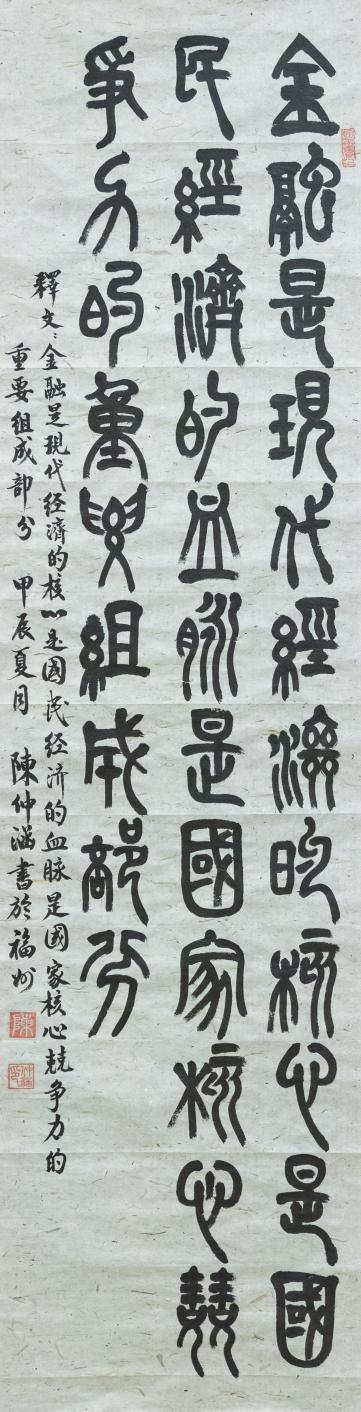 金融是現代經濟的核心是國
民經濟的血脉是國家核心競
爭力的重要組成部分
釋文：金融是現代经濟的核心是國民经济的血脉是國家核心競争力的
重要组成部分 甲辰夏月 陳仲涵書於福州